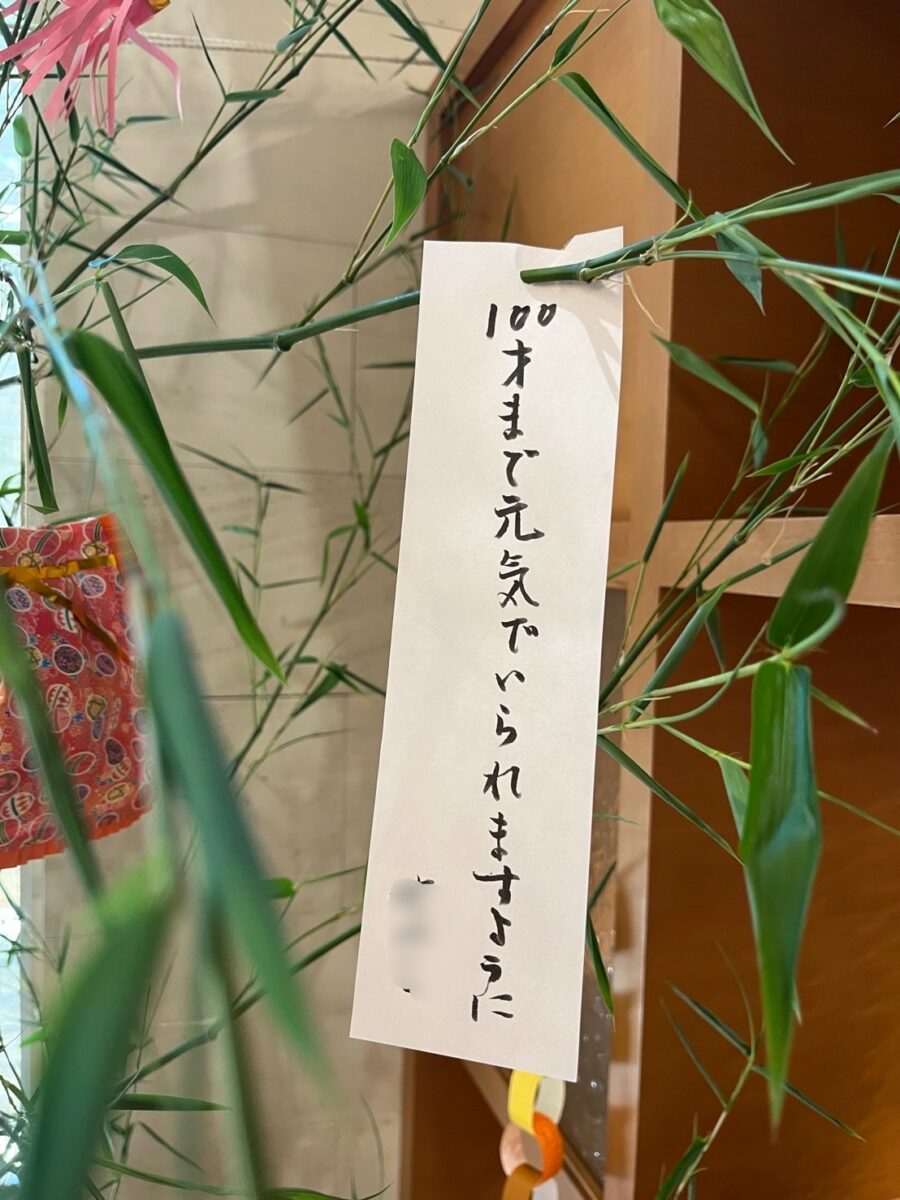 100才まで元気でいられますように